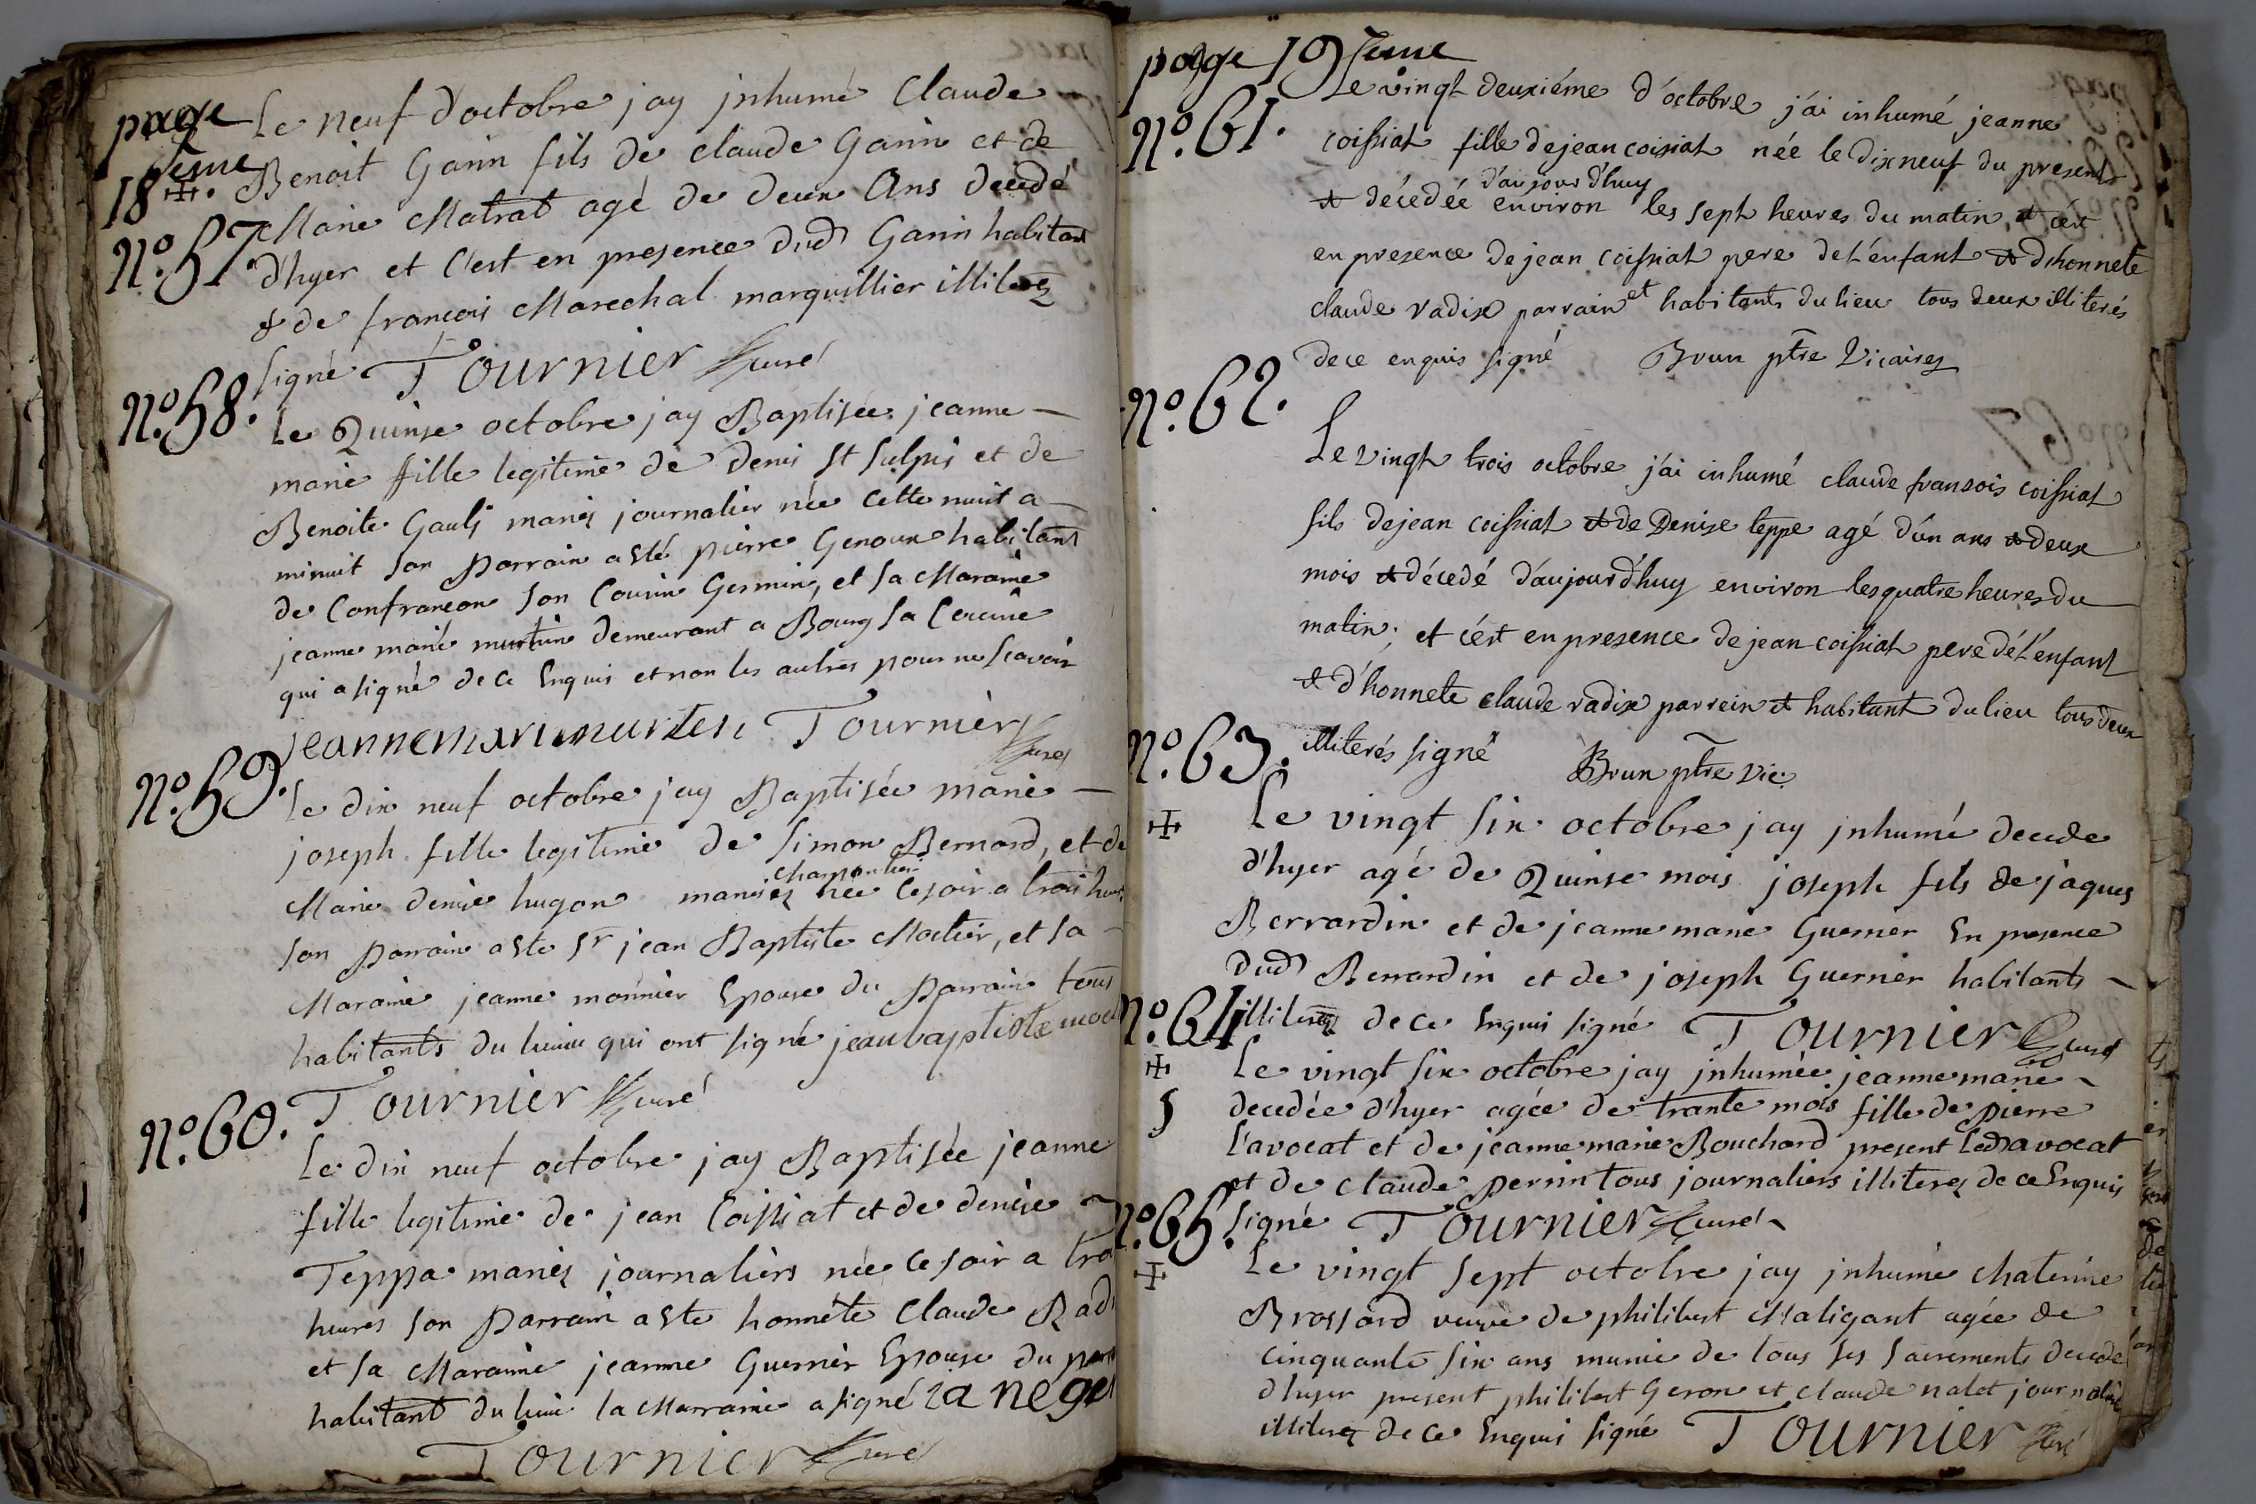 page
18eme
N°.57
Le neuf d'octobre jay jnhumé Claude
Benoit Garin fils de claude Garin et de
Marie Matrat agé de deux Ans decedé
d'hyer et C'est en presence dud Garin habitant
& de francois Marechal marguillier illiterez
signé Tournier Curé
N°.58.
Le Quinse octobre jay Baptisée jeanne
marie fille legitime de Denis St Sulpis et de
Benoite Gauli mariez journalier née cette nuit a
minuit son Parrain a Eté pierre Genoux habitant
de Confrancon son Cousin Germin, et sa Maraine
jeanne marie murtin demeurant a Bourg sa Cousine
qui a signé de ce Enquis et non les autres pour ne scavoir
jeannemarimurten Tournier Curé
N°.59.
Le dix neuf octobre jay Baptisée marie
joseph fille legitime de Simon Bernard, et de
charpentier
Marie denise hugon mariez née ce soir a trois heures
son Parrain a Eté Sr jean Baptiste Moctier, et sa
Maraine jeanne monnier Epouse du Parrain tous
habitants du lieux qui ont signé jeanbaptiste
Tournier Curé
N°.60.
Le dix neuf octobre jay Baptisée jeanne
fille legitime de jean Coissiat et de denise
Teppa mariez journaliers née ce soir a tro
heures son Parrain a Ete honnête Claude Radi
et sa Maraine jeanne Guerrier Epouse du
habitant du lieux la Marraine a signé ia nege
Tournier Curé
page 19eme
N°.61.
Le vingt deuxiéme d'octobre j'ai inhumé jeanne
coissiat fille de jean coissiat née le dix neuf du present
d'aujourd'huy
& décedée environ les sept heures du matin, & c'est
en presence de jean coissiat pere de l'enfant & d'honnete
claude radix parrain et habitants du lieu tous deux illiterés
de ce enquis signé Brun ptre Vicaire
N°.62.
Le vingt trois octobre j'ai inhumé claude fransois coissiat
fils de jean coissiat & de Denise teppe agé d'un ans & deux
mois & décedé d'aujourd'huy environ les quatre heures du
matin; et c'est en presence de jean coissiat pere de l'enfant
& d'honnete claude radix parrein & habitant du lieu tous deux
illiterés signé Brun ptre Vic.
N°.63.
Le vingt six octobre jay jnhumé decede
d'hyer agé de Quinse mois joseph fils de jaques
Berrardin et de jeanne marie Guerrier En presence
dud Berrardin et de joseph Guerrier habitants
illiterez de ce Enquis signé Tournier Curé
N°.64
Le vingt six octobre jay jnhumée jeanne marie
decedée d'hyer agée de trante mois fille de pierre
l'avocat et de jeanne marie Bouchard present led avocat
et de claude perrin tous journaliers illiterez de ce Enquis
signé Tournier Curé
N°.65.
Le vingt sept octobre jay jnhumé chaterine
Brossard veuve de philibert Maligant agée de
cinquante six ans munie de tous ses sacrements decede
d'hyer present philibert Geron et claude nalet journalier
illiterez de ce Enquis signé Tournier Curé